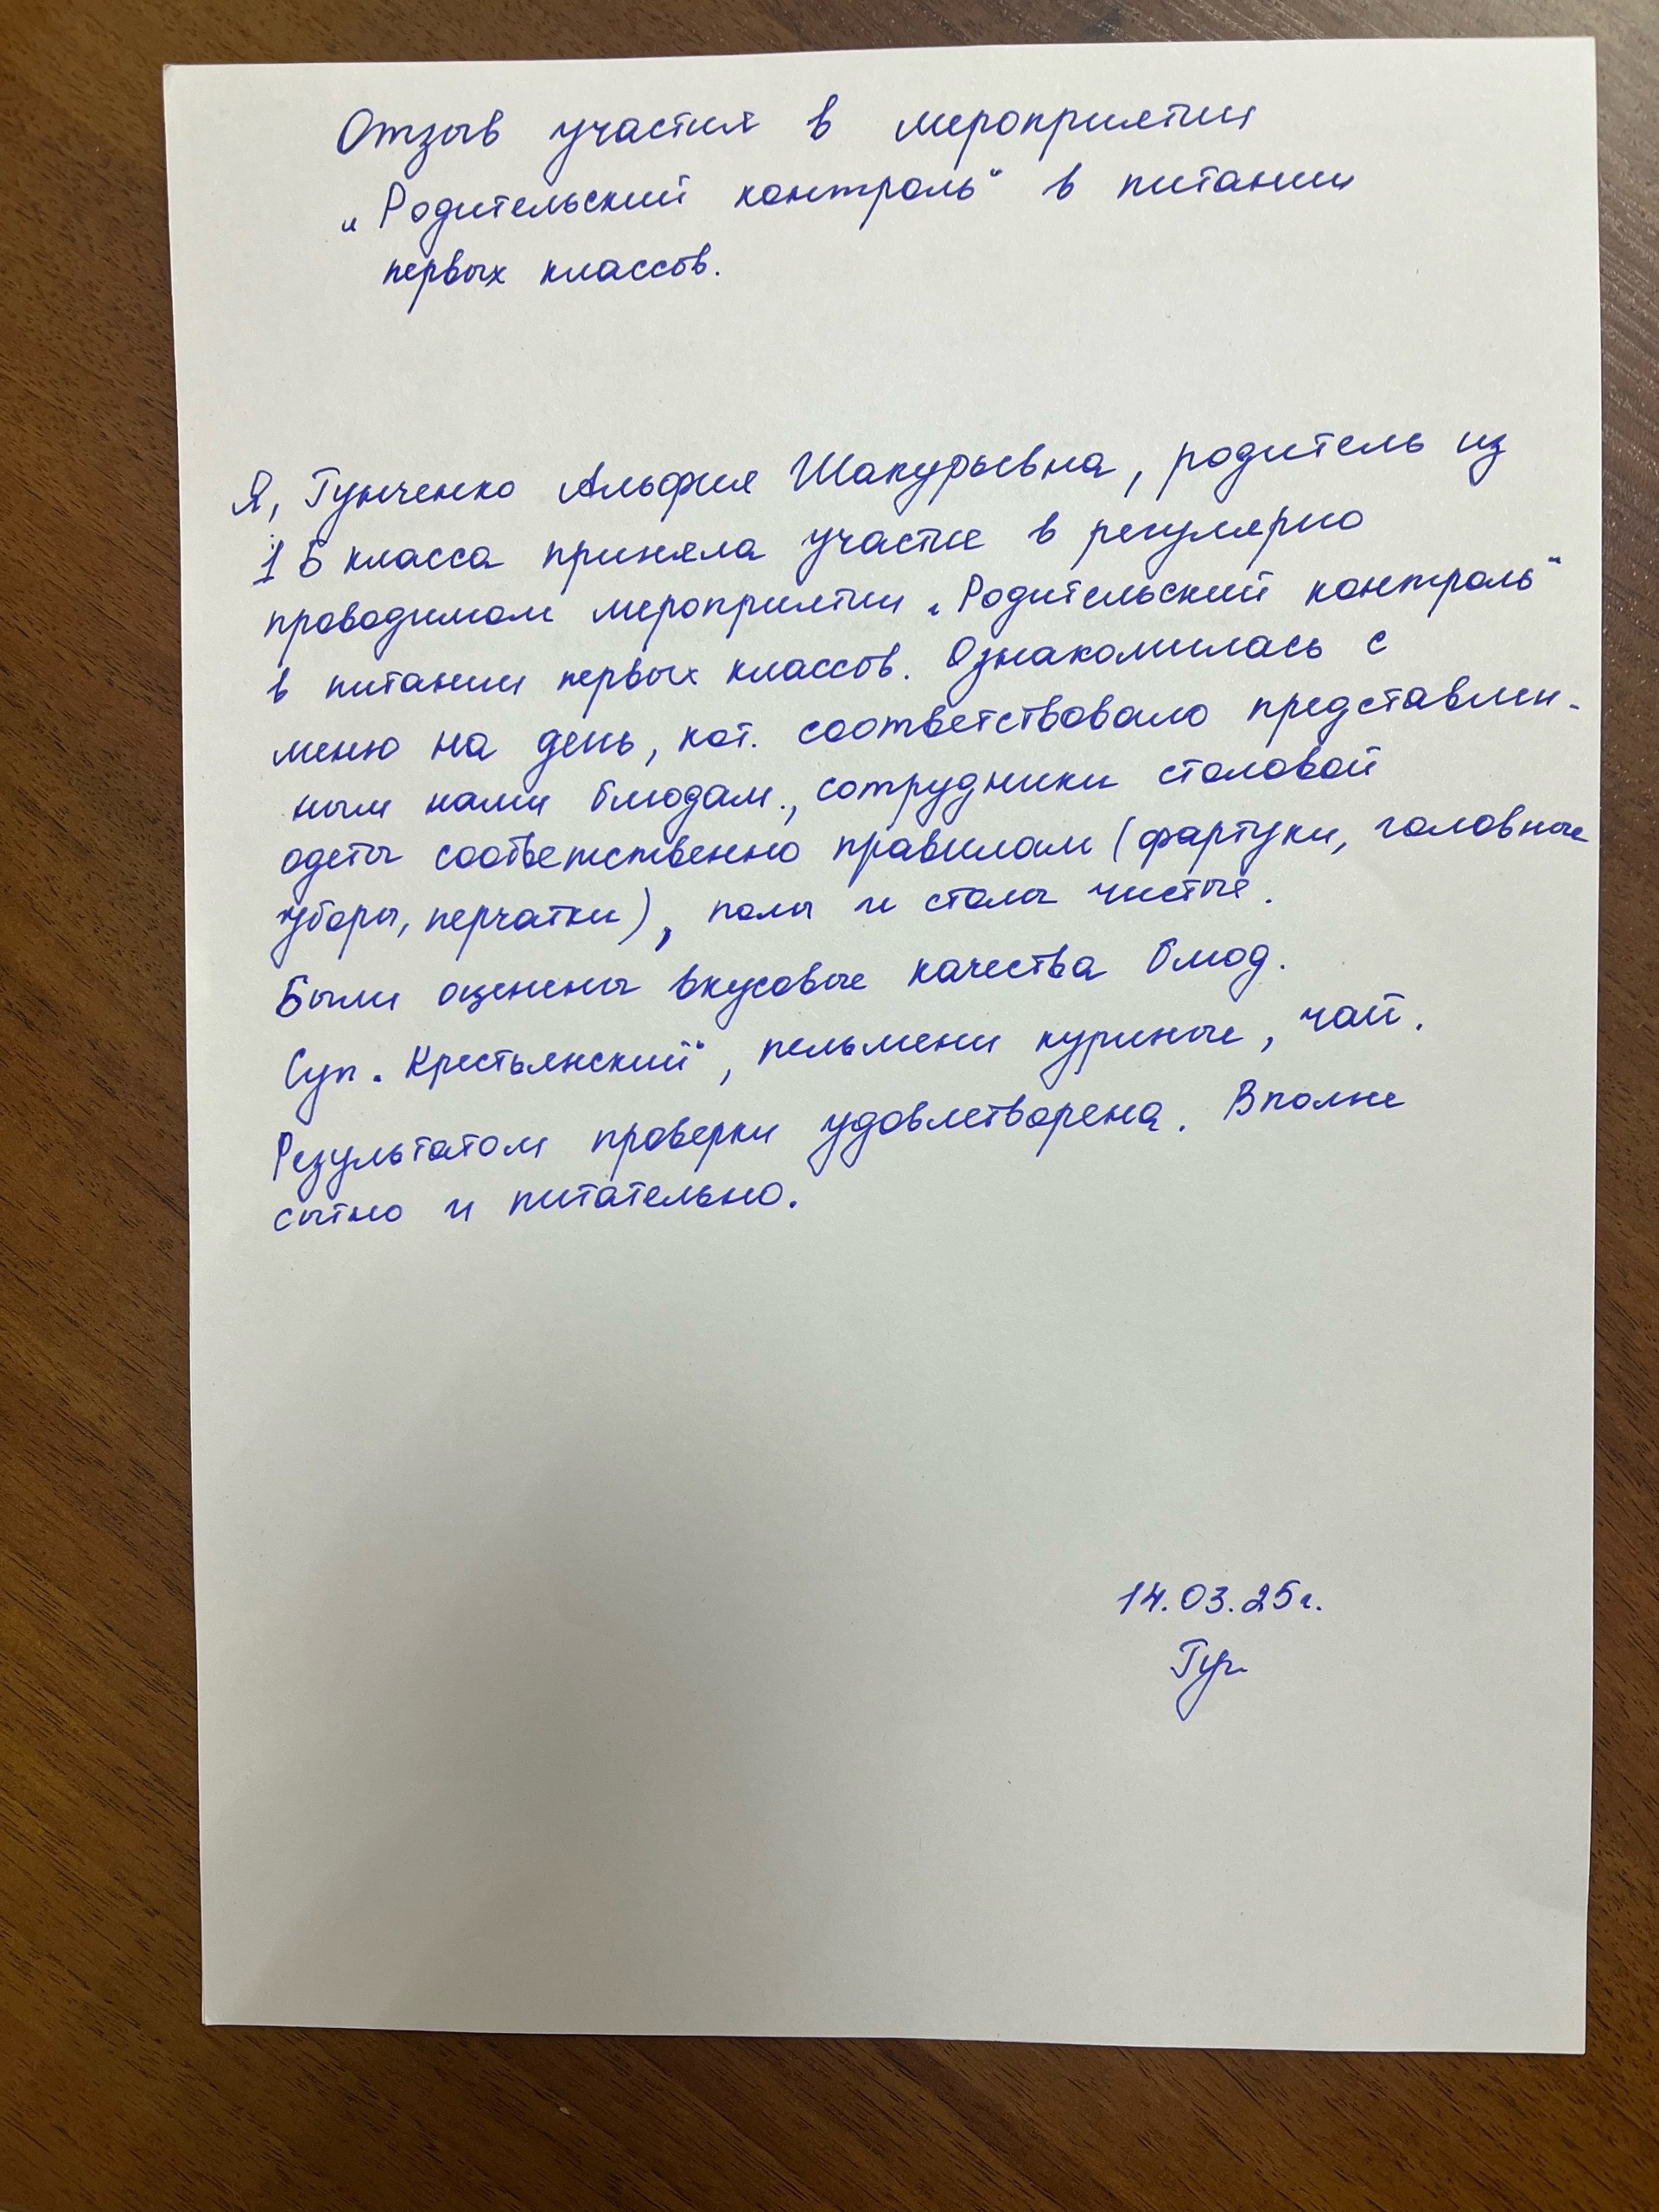 Отзыв участия в мероприятии
„Родительский контроль“ в питании
первых классов.
Я, Гунченко Альфия Шакурьевна, родитель из
1 Б класса приняла участие в регулярно
проводимом мероприятии „Родительский контроль“
в питании первых классов. Ознакомилась с
меню на день, кот. соответствовало представлен-
ным нами блюдам., сотрудники столовой
одеты соответственно правилам (фартуки, головные
уборы, перчатки), полы и столы чистые.
Были оценены вкусовые качества блюд.
Суп „Крестьянский“, пельмени куриные, чай.
Результатом проверки удовлетворена. Вполне
сытно и питательно.
14.03.25г.